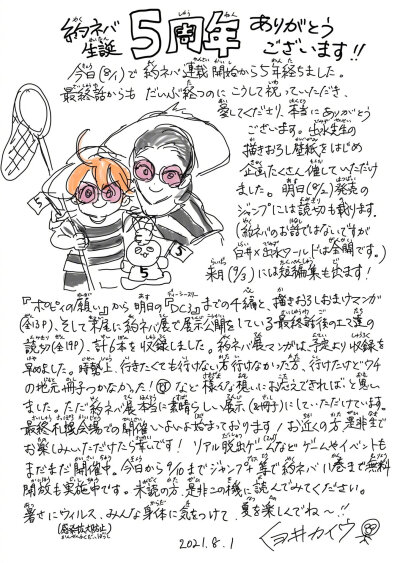 約ネバ
生誕
5周年
ありがとう
ございます!!
今日(8/1)で約ネバ連載開始から5年経ちました。
最終話からもだいぶ経つのにこうして祝っていただき、
愛してくださり、本当にありがとう
ございます。出水先生の
描きおろし壁紙をはじめ
企画たくさん催していただけ
ました。明日(8/2)発売の
ジャンプには読切も載ります。
(約ネバのお話ではないですが
白井×出水ワールドは全開です。)
来月(9/3)には短編集も出ます!
5
5
5
『ポピィの願い』から明日の『DC3』までの4編と、描きおろしおまけマンガ
(全13P)、そして末尾に約ネバ展で展示公開をしている最終話後のエマ達の
読切(全19P)、計6本を収録しました。約ネバ展マンガは、予定より収録を
早めました。時勢上、行きたくても行けない方行けなかった方、行けたけどウチ
の地元冊子つかなかった!
など様々な想いにお応えできれば、と思い
ました。ただ約ネバ展本当に素晴らしい展示(&冊子)にしていただいています。
最終札幌会場での開催いよいよ始まっております!お近くの方是非生で
お楽しみいただけたら幸いです! リアル脱出ゲームなどゲームやイベントも
まだまだ開催中。今日から9/10までジャンプ+等で約ネバ1巻まで無料
開放も実施中です。未読の方、是非この機に読んでみてください。
暑さにウィルス、みんな身体に気をつけて、夏を楽しんでね〜!!
(感染拡大防止)
2021.8.1
白井カイウ